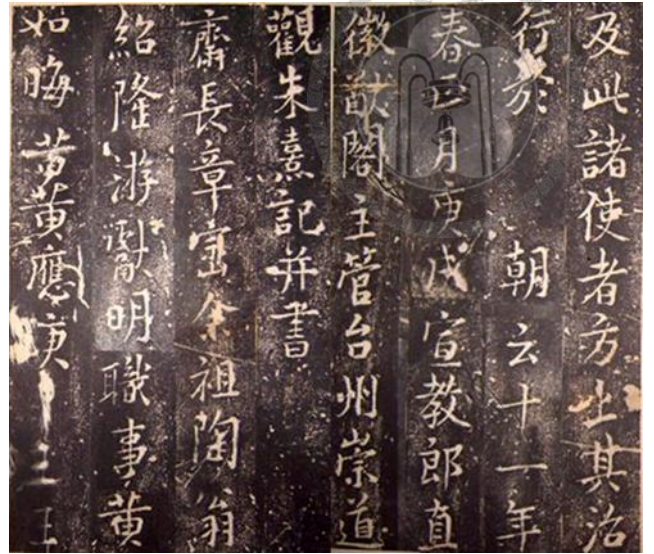 及此諸使者方上其治
行於朝云十一年
春正月庚戌宣教郎直
徽猷閣主管台州崇道
觀朱熹記并書
齋長章寓余祖陶翁
紹隆游獻明職事黃
如晦黃黃應庚